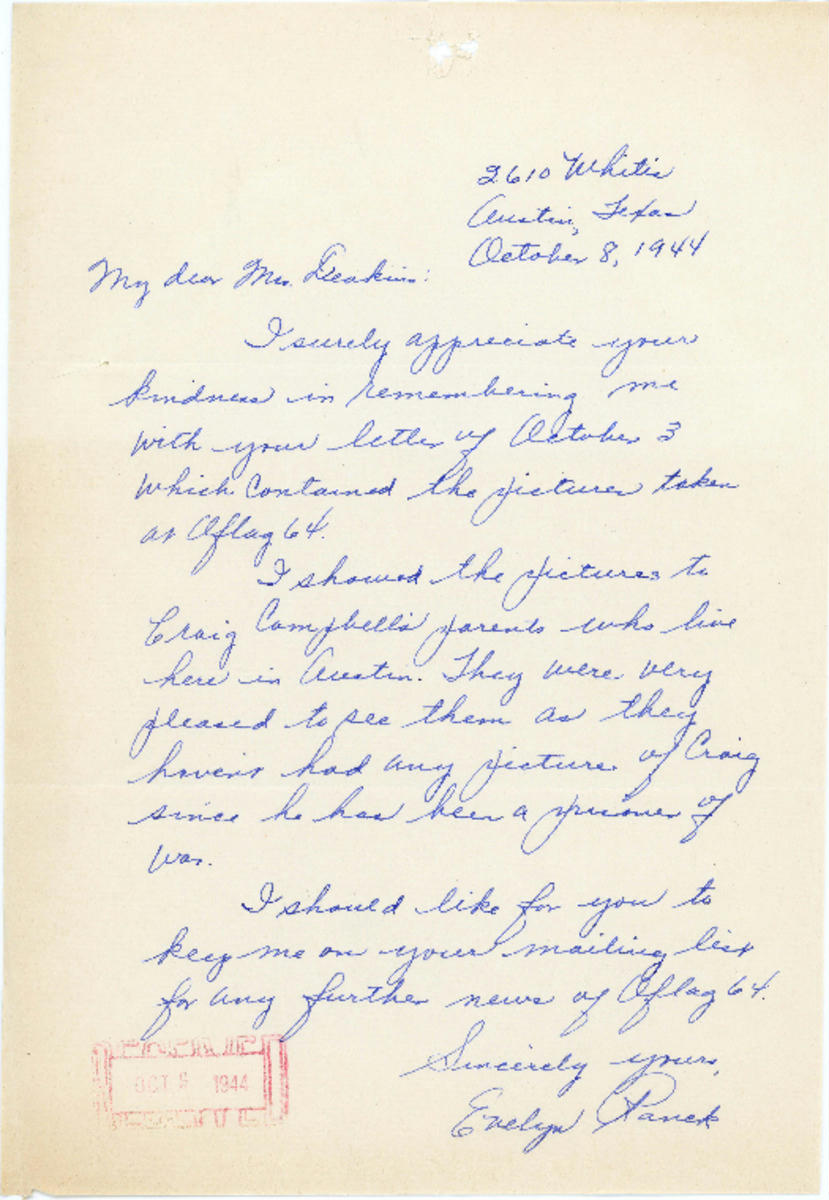 2610 Whitis
Austin, Texas
October 8, 1944
My dear Mr. Deakins:
I surely appreciate your
kindness in remembering me
with your letter of October 3
which contained the pictures taken
at Oflag 64.
I showed the pictures to
Craig Campbell's parents who live
here in Austin. They were very
pleased to see them as they
haven't had any picture of Craig
since he has been a prisoner of
war.
I should like for you to
keep me on your mailing list
for any further news of Oflag 64.
Sincerely yours,
Evelyn
OCT 1944